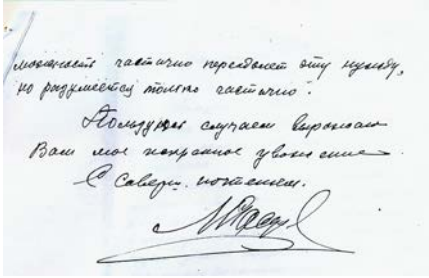 можность частично переборет эту нужду,
но разумеется только частично.
Пользуюсь случаем выражаю
Вам мое искреннее уважение
С соверш. почтением.